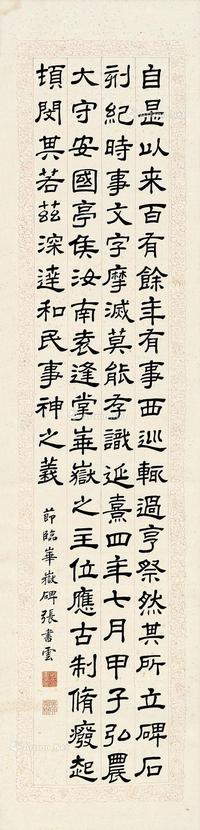 自是以来百有餘年有事西巡輒過亨祭然其所立碑石
刻紀時事文字摩滅莫能存識延熹四年七月甲子弘農
大守安國亭侯汝南袁逢掌崋嶽之主位應古制脩廢起
頓閔其若茲深達和民事神之義
節臨崋嶽碑張書雲